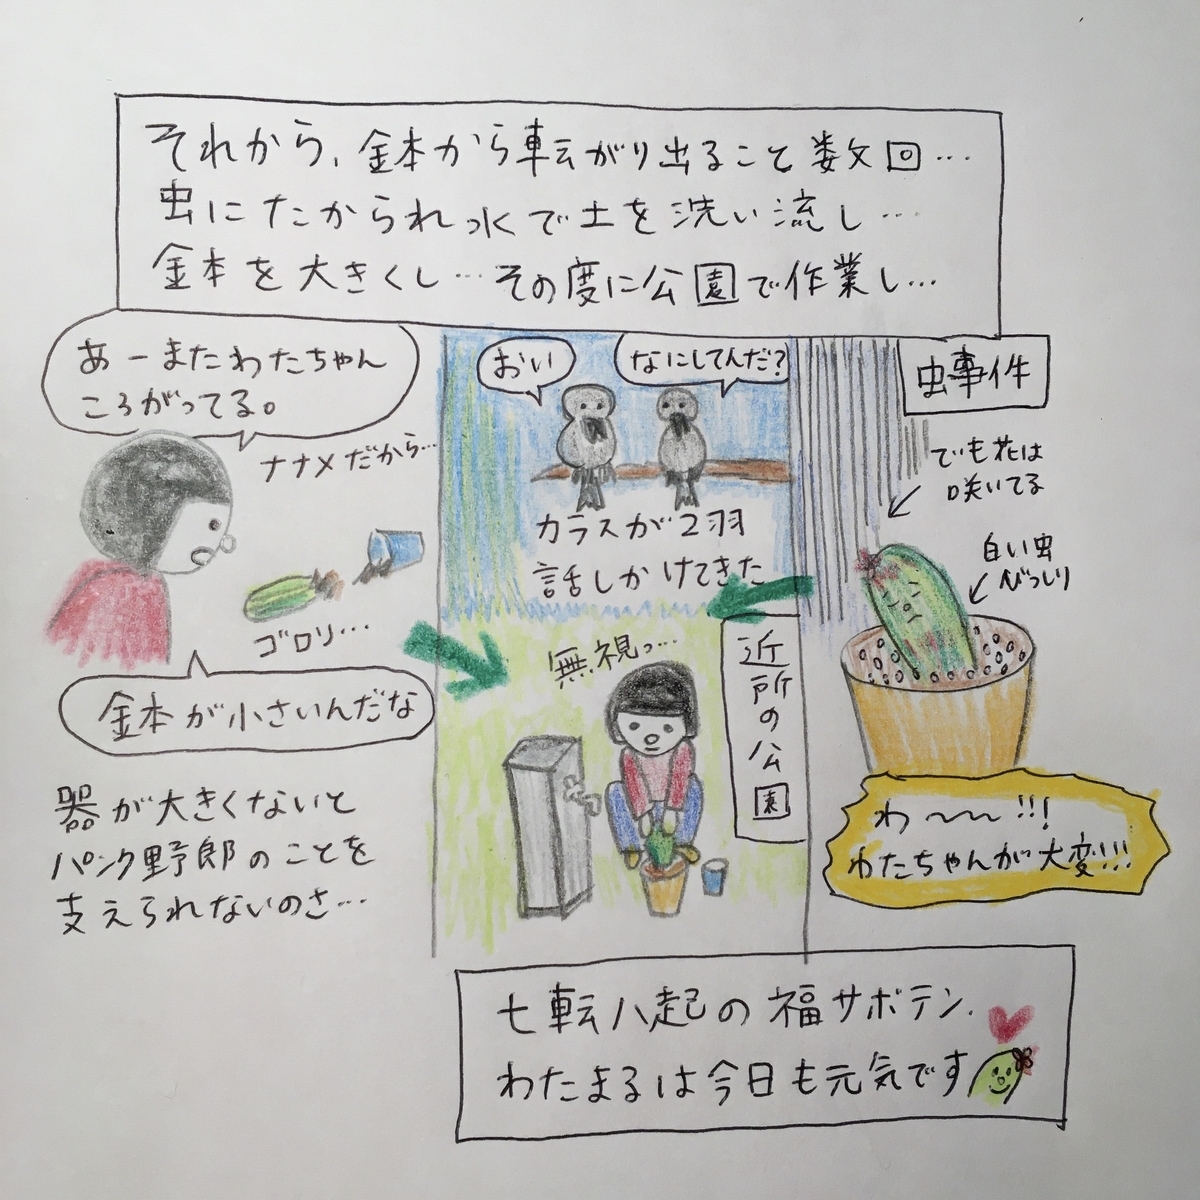 それから、金本から転がり出ること数回…
虫にたかられ水で土を洗い流し…
金本を大きくし…その度に公園で作業し…
あーまたわたちゃん
ころがってる。
ナナメだから…
ゴロリ…
金本が小さいんだな
器が大きくないと
パンク野郎のことを
支えられないのさ…
おい
なにしてんだ?
カラスが2羽
話しかけてきた
無視っ…
近所の公園
虫事件
でも花は
咲いてる
白い虫
びっしり
わ〜〜!!!
わたちゃんが大変!!!
七転八起の福サボテン.
わたまるは今日も元気です